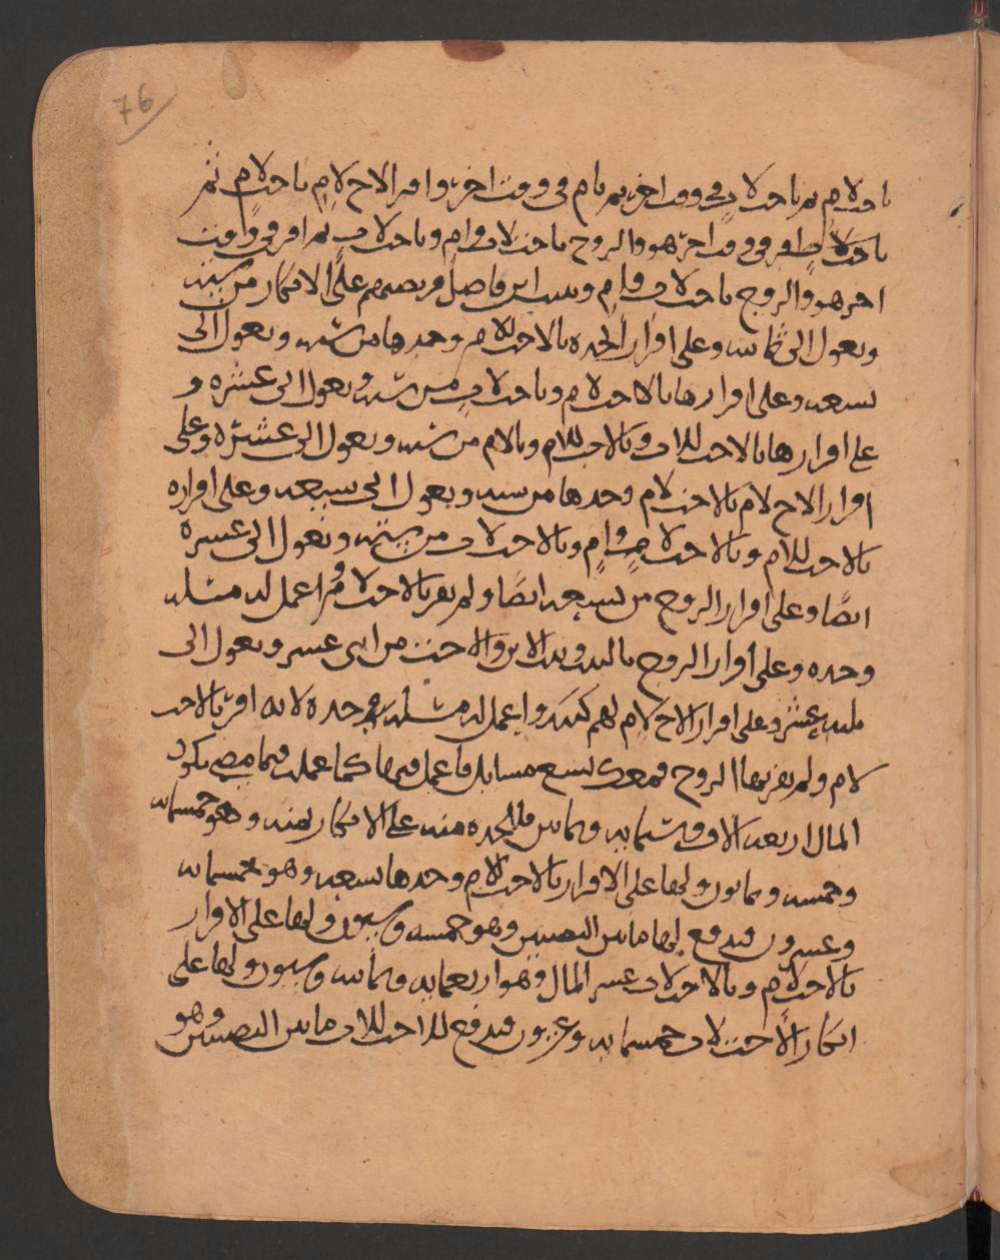 76
باخت لام ثم باخت لاب في وقت اخر ثم بام في وقت اخر واقر الاخ لام باخت لام ثم
باخت لاب ثم في وقت اخر هو والزوج باخت لاب وام وباخت لاب ثم اقر في وقت
اخر هو والزوج باخت لاب وام وبنت ابن فاصل فريضتهم على الانكار من ستة
وتعول الى ثمانية وعلى اقرار الجدة بالاخت للام وحدها من ستة وتعول الى
تسعة وعلى اقرارها بالاخت لام وباخت لاب من ستة وتعول الى عشرة و
على اقرارها بالاخت للاب وبالاخت للام وبالام من ستة وتعول الى عشرة وعلى
اقرار الاخ لام بالاخت لام وحدها من ستة وتعول الى سبعة وعلى اقراره
بالاخت للام وبالاخت لاب وام وبالاخت لاب من ستة وتعول الى عشرة
ايضًا وعلى اقرار الزوج من تسعة ايضًا ولم يقر بالاخت لام واعمل له مسئلة
وحده وعلى اقرار الزوج بالبنت وبنت الابن والاخت من اثنى عشر وتعول الى
ثلثة عشر وعلى اقرار الاخ لام لهم كذلك واعمل له مسئلة وحده لانه اقر بالاخت
لام ولم يقر بها الزوج فمعك تسع مسايل فاعمل فيها كما عملت فيما مضى يكون
المال اربعة الاف وستماية وثمانين فللجدة منه على الانكار ثمنه وهو خمسماية
وخمسة وثمانون ولها على الاقرار بالاخت لام وحدها تسعه وهو خمسماية
وعشرون فتدفع لها ما بين النصيبين وهو خمسة وستون ولها على الاقرار
بالاخت لام وبالاخت لاب عشر المال وهو اربعماية وثمانية وستون ولها على
انكار الاخت لاب خمسماية وعشرون فتدفع للاخت للاب ما بين النصيبين وهو